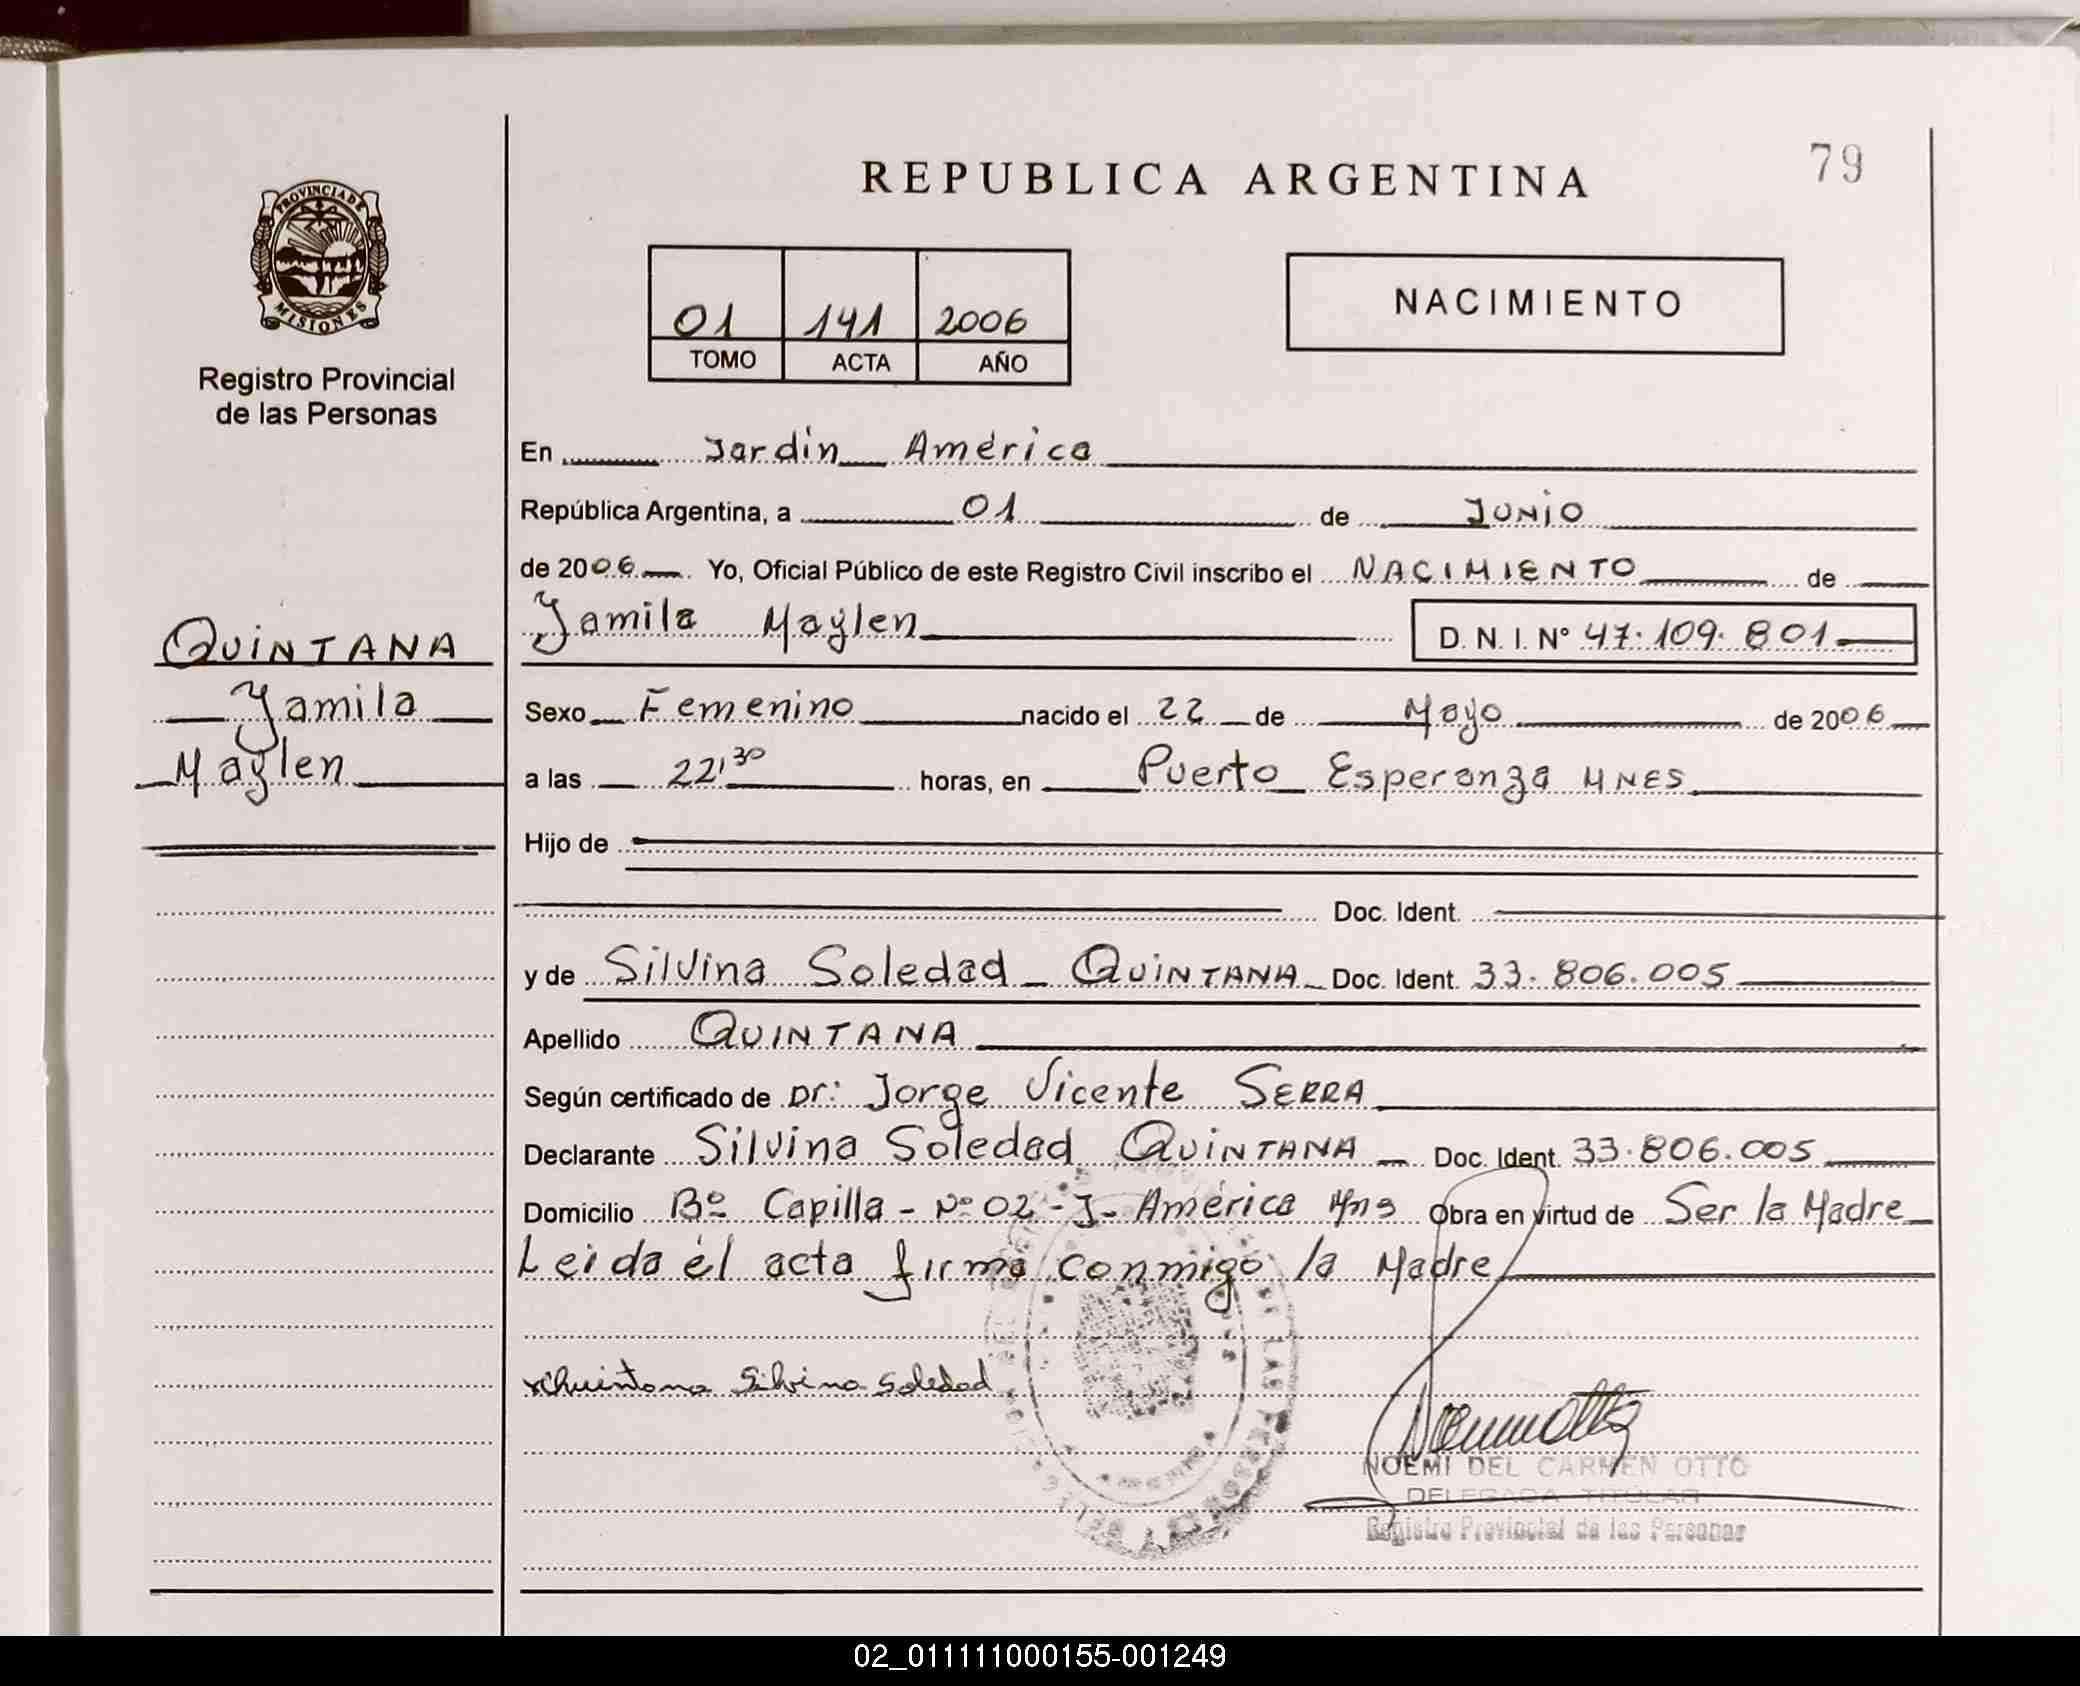 REPUBLICA ARGENTINA
79
PROVINCIA DE
MISIONES
Registro Provincial
de las Personas
01 141 2006
TOMO ACTA AÑO
NACIMIENTO
En Jardin América
República Argentina, a 01 de JUNIO
de 2006 Yo, Oficial Público de este Registro Civil inscribo el NACIMIENTO de
Yamila Maylen D. N. I. N° 47.109.801
QUINTANA
Yamila
Maylen
Sexo Femenino nacido el 22 de Mayo de 2006
a las 22,30 horas, en Puerto Esperanza MNES
Hijo de
Doc. Ident.
y de Silvina Soledad QUINTANA Doc. Ident. 33.806.005
Apellido QUINTANA
Según certificado de Dr: Jorge Vicente SERRA
Declarante Silvina Soledad QUINTANA Doc. Ident. 33.806.005
Domicilio Bº Capilla - Nº 02 - J- América Mns Obra en virtud de Ser la Madre
Leida él acta firma conmigo la Madre
Quintana Silvina Soledad
NOEMI DEL CARMEN OTTO
DELEGADA TITULAR
Registro Provincial de las Personas
02_011111000155-001249